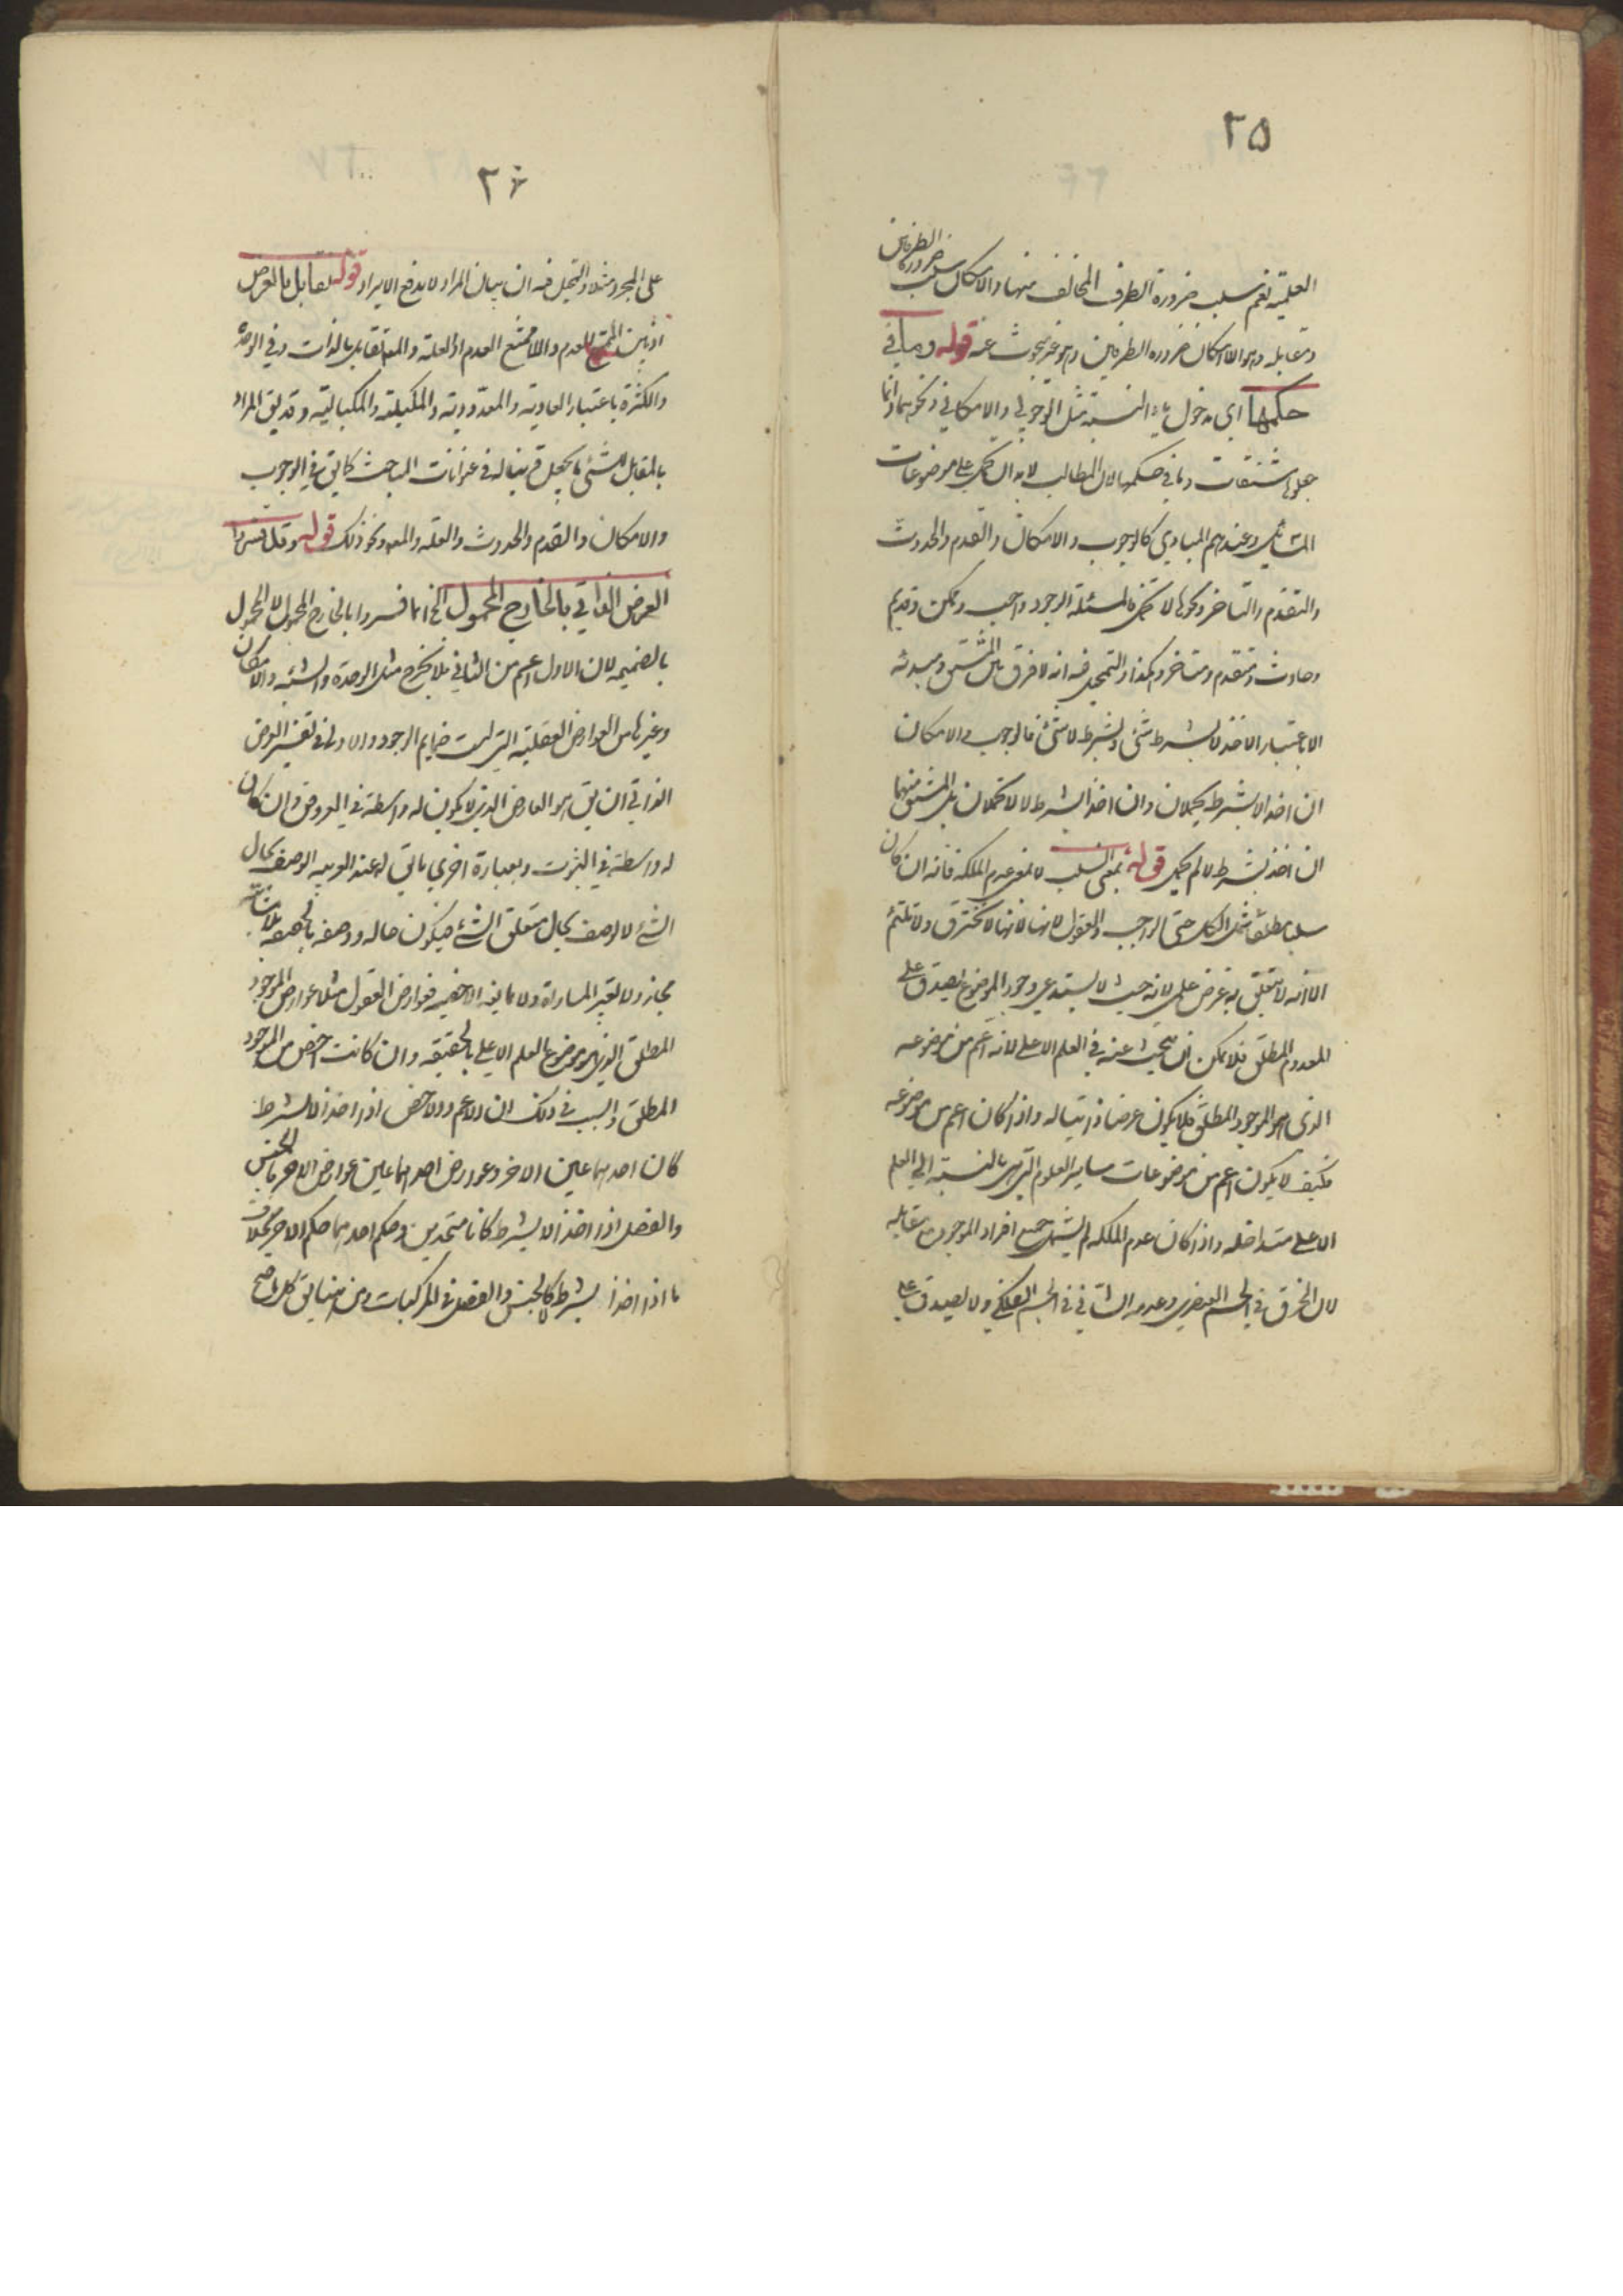 ٢٥
العلمية نعم سلب ضرورة الطرف المخالف منها والامكان سلب ضرورة الطرفين
ومقابله وهو اللاامكان ضرورة الطرفين وهو غير مبحوث عنه قوله وما في
حكمها اي مدخول ياء النسبة مثل الوجوبي والامكاني ونحوهما وانما
جعلوها مشتقات وما في حكمها لان المطالب لابد ان يحمل على موضوعات
المسائل وعندهم المبادي كالوجوب والامكان والقدم والحدوث
والتقدم والتاخر ونحوها لا تحمل فالمسئلة الوجود واجب وممكن وقديم
وحادث ومتقدم ومتاخر وهكذا والتمحل فيه انه لا فرق بين المشتق ومبدئه
الا باعتبار الاخذ لا بشرط شئ وبشرط لا شئ فالوجوب والامكان
ان اخذا لا بشرط يحملان وان اخذا بشرط لا لا تحملان بل المشتق منهما
ان اخذ بشرط لا لم يحمل قوله بمعنى السلب لا بمعنى عدم الملكة فانه ان كان
سلبا مطلقا شمل الكل حتى الواجب والعقول لانها لا تخترق ولا تلتئم
الا انه لا يتعلق به غرض علمي لانه حيث لا يستدعي وجود الموضوع يصدق على
المعدوم المطلق فلا يمكن ان يبحث عنه في العلم الاعلى لانه اعم من موضوعه
الذي هو الموجود المطلق فلا يكون عرضا ذاتيا له واذا كان اعم من موضوعه
فكيف لا يكون اعم من موضوعات ساير العلوم التي هي بالنسبة الى العلم
الاعلى متداخلة واذا كان عدم الملكة لم يشمل جميع افراد الموجود مع مقابله
لان الخرق في الجسم العنصري وعدمه الشاني في الجسم الفلكي ولا يصدق على
٢۶
على المجرد مثلا والتمحل فيه ان بيان المراد لا يدفع الايراد قوله تقابل بالعرض
اذ بين الممتنع العدم واللاممتنع العدم او العلة والمع تقابل بالذات وفي الوحدة
والكثرة باعتبار العادية والمعدودية والمكيلية والمكيالية وقد يق المراد
بالمقابل لشئ ما يجعل قرينا له في عنوانات المباحث كما يق في الوجوب
والامكان والقدم والحدوث والعلة والمع ونحو ذلك قوله وقد فسروا
العرض الذاتي بالخارج المحمول الخ انما فسروا بالخارج المحمول لا المحمول
بالضميمة لان الاول اعم من الثاني فلا يخرج مثل الوحدة والشيئية والامكان
وغيرها من العوارض العقلية التي ليست ضمايم الوجود والاولى في تفسير العرض
الذاتي ان يق هو العارض الذي لا يكون له واسطة في العروض وان كان
له واسطة في الثبوت وبعبارة اخرى ما يق له عند الادبية الوصف بحال
الشئ لا الوصف بحال متعلق الشئ فيكون حاله ووصفه بالحقيقة بلا شائبة
مجاز ولا يعتبر المساواة ولا ما نيه الاخصية فعوارض العقول مثلا عوارض الموجود
المطلق الذي هو موضوع العلم الاعلى بالحقيقة وان كانت اخص من الموجود
المطلق والسبب في ذلك ان الاعم والاخص اذا اخذا لا بشرط
كان احدهما عين الاخر وعوارض احدهما عين عوارض الاخر فالجنس
والفصل اذا اخذا لا بشرط كانا متحدين وحكم احدهما حكم الاخر بخلاف
ما اذا اخذا بشرط لا كالجنس والفصل في المركبات ومن هنا يق كل ما صح